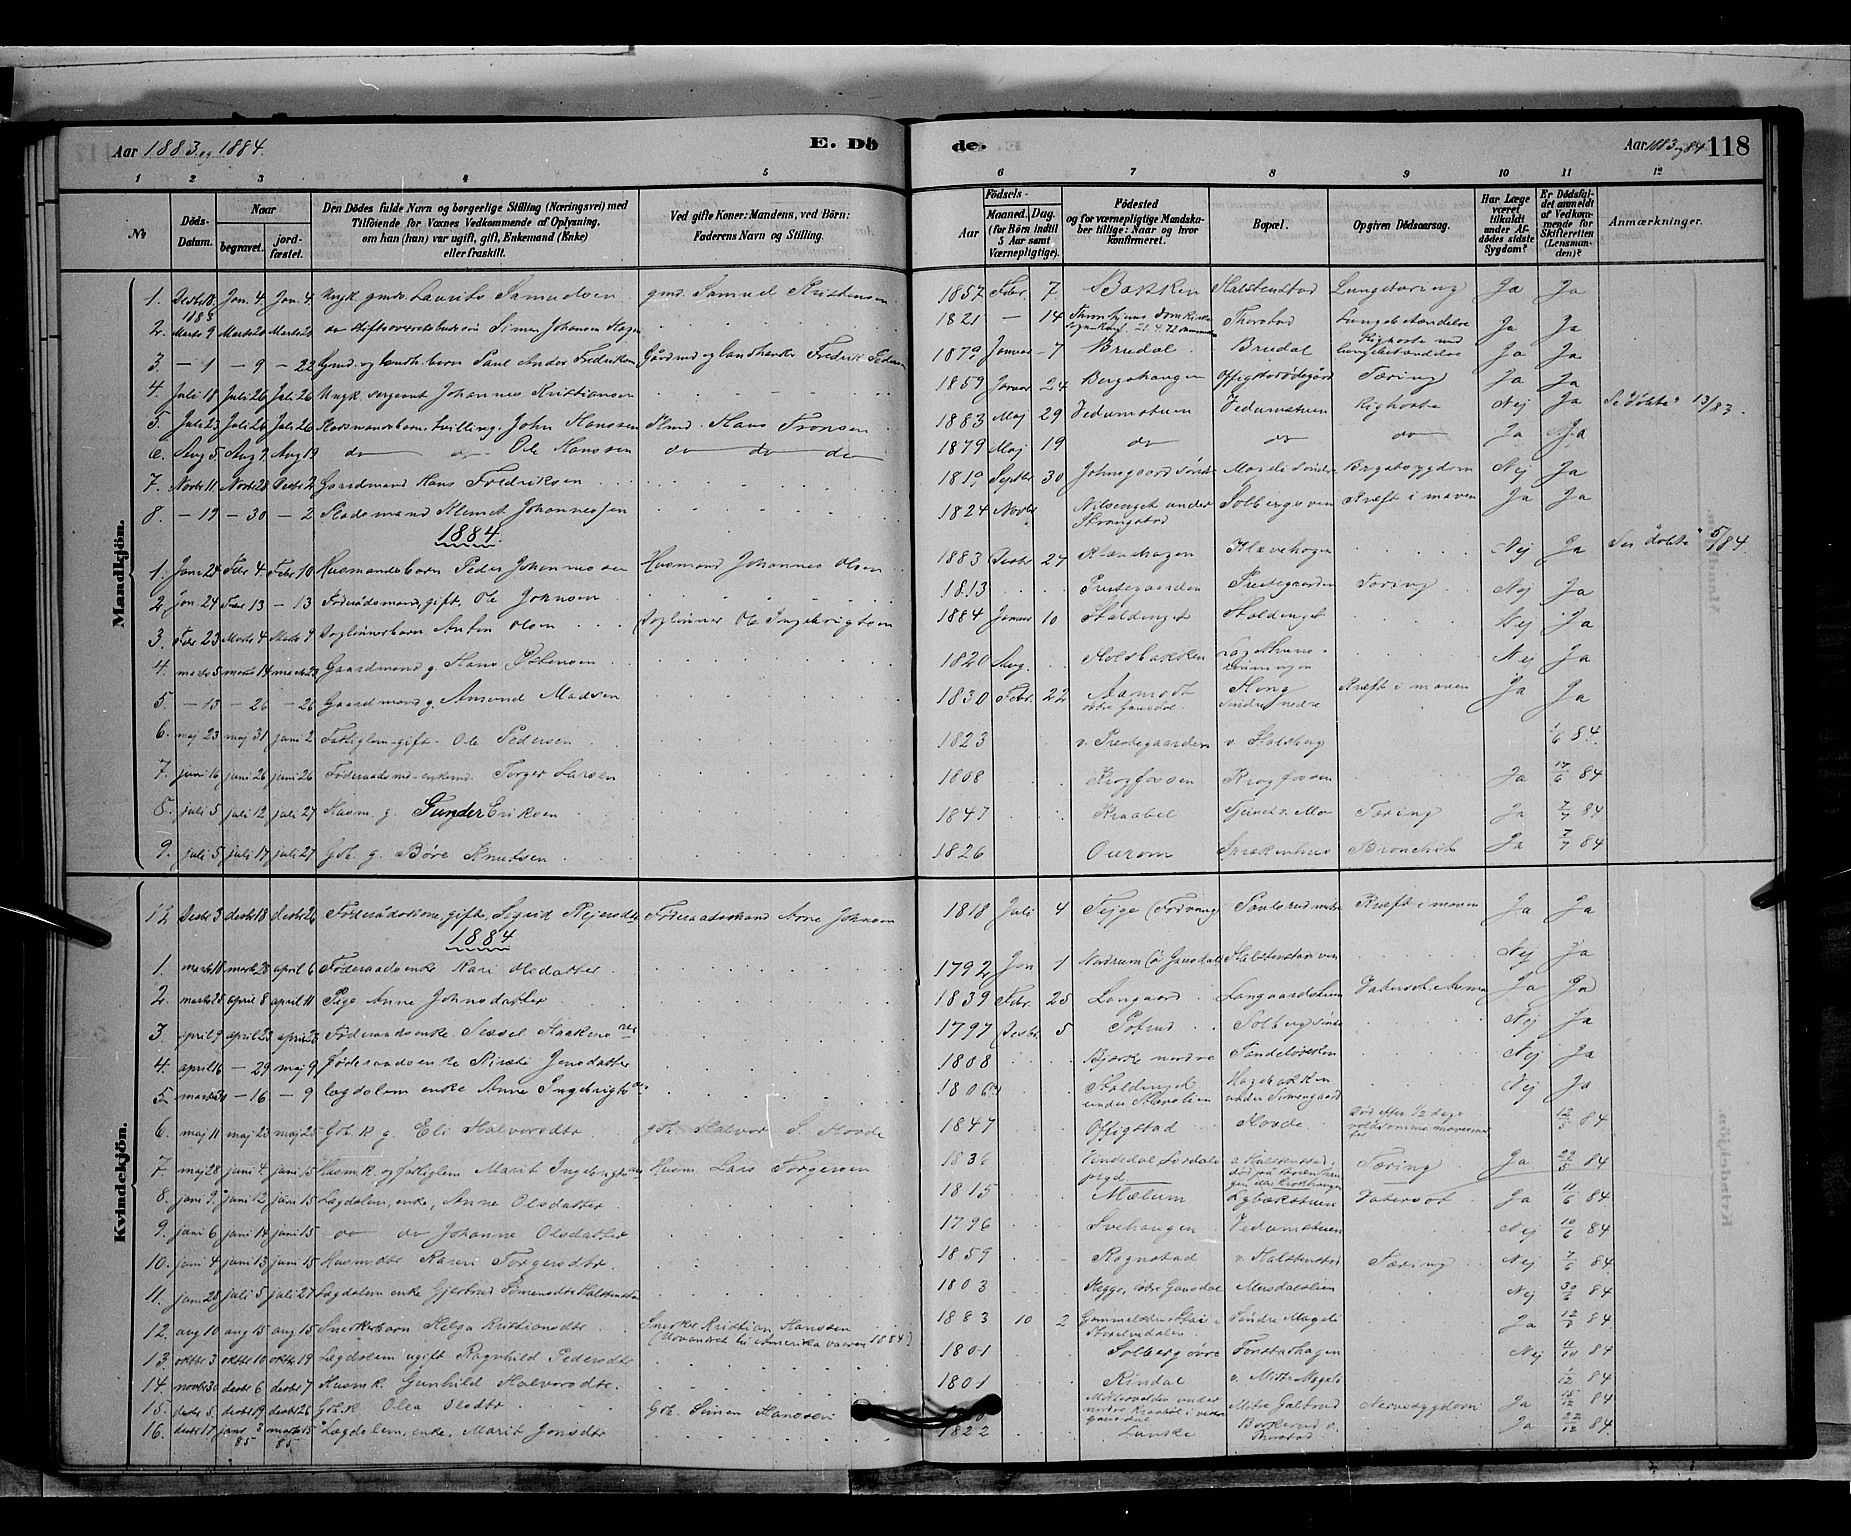 Aar 1883 og 1884.
E. Dö
de.
Aar 1883 og 84
118
1 2 3 4 5 6 7 8 9 10 11 12
№
Döds-Datum.
Naar
begravet.
jord-fæstet.
Den Dödes fulde Navn og borgerlige Stilling (Næringsvei) med
Tilföiende for Voxnes Vedkommende af Oplysning,
om han (hun) var ugift, gift, Enkemand (Enke)
eller fraskilt.
Ved gifte Koner: Mandens, ved Börn:
Faderens Navn og Stilling.
Födsels-
Aar
Maaned. Dag.
(for Börn indtil
5 Aar samt
Værnepligtige).
Födested
og for værnepligtige Mandska-
ber tillige: Naar og hvor
konfirmeret.
Bopæl.
Opgiven Dödsaarsag.
Har Læge
været
tilkaldt
under Af-
dödes sidste
Sygdom?
Er Dödsfal-
det anmeldt
af Vedkom-
mende for
Skifteretten
(Lensman-
den)?
Anmærkninger.
Mandkjön.
1. Decbr 18. Jan. 4. Jan. 4 Ungk. gmds. Laurits Samuelsen gmd. Samuel Kristensen 1857 Febr. 7 Bakken Halstenstad Lungetæring Ja Ja
1883
2. Marts 9 Marts 20 Marts 20 Simen Johansen Hagen 1821 — 14 Thorstad Lungebetændelse Ja Ja
3. — 1 — 9 — 22 Gmd. og landh. barn Paul Andor Fredriksen Gårdmd og landhandler Fredrik Pedersen 1879 Januar 7 Brudal Brudal Kighoste med lungebetændelse Ja Ja
4. Juli 18 Juli 26 Juli 26 Ungk. sergeant Johannes Kristiansen 1859 Januar 24 Bergehaugen Offigstadødegård Tæring Ja Ja
5. Juli 23 Juli 26 Juli 26 Pladsmandsbarn, tvilling, John Hanssen Plmd. Hans Tronsen 1883 Maj 29 Vedumstuen Vedumstuen Kighoste Nej Ja Se "døbte" 13/83.
6. Aug 5 Aug 9 Aug 19 do do Ole Hanssen do do do 1879 Maj 19 do do do Ja Ja
7. Novbr 11 Novbr 20 Decbr 2 Gaardmand Hans Fredriksen 1819 Septbr 30 Johnsgaard søndre Magele søndre Brystsygdom Nej Ja
8. — 19 — 30 — 2 Pladsmand Klemet Johannessen 1824 Novbr Nilsenget under Strangstad Solbergsven Kræft i maven Ja Ja
1884.
1. Janr 24 Febr 4. Febr 10 Husmandsbarn Peder Johannessen Husmand Johannes Olsen 1883 Decbr 27 Klævehagen Klævehagen Nej Ja Se "døbte" 5/84.
2. Jan. 24 Febr 13 — 13 Føderådsmand, gift, Ole Johnsen 1813 Prestegaarden Prestegaarden Tæring Nej Ja
3. Febr 23 Marts 4 Marts 9 Inglønnerbarn Anton Olsen Inglønner Ole Ingebrigtsen 1884 Januar 10 Staldenget Staldenget Nej Ja
4. marts 5 marts 14 marts 23 Gaardmand g. Hans Østensen 1820 Aug. Holsbakken Nej Ja
5. — 13 — 26 — 26 Gaardmand g. Amund Madsen 1830 Febr. 22 Aamodt østre Gausdal Kong Søndre nedre Kræft i maven Ja Ja
6. maj 23 maj 31 juni 2 Fattiglem gift Ole Pedersen 1823 v. Prestegaarden v. Stalsberg 1/6 84.
7. juni 16 juni 26 juni 26 Føderaadsmd. enkemd. Torger Larsen 1808 Krogfossen Krogfossen Ja 17/6 84
8. juli 5 juli 12 juli 27 Husm. g. Gunder Eriksen 1847 Kraabel Mo Tæring Ja 7/7 84
9. juli 5 juli 17 juli 27 Gbr. g. Børe Knutsen 1826 Ourom Sprækenhus Bronchit Ja 7/7 84
Kvindekjön.
12. Decbr 3 decbr 18 decbr 26 Føderådskone, gift, Sigrid Rejersdtr Føderaadsmand Arne Johnsen 1818 Juli 4 Tejge (Fodvang) Paulsrud Kræft i maven Ja Ja
1884
1. marts 18 marts 28 april 6 Føderaadsenke Kari Olsdatter 1792 Jan 1 Nordrum (ø Gausdal) Halstenstadsven Nej Ja
2. marts 25 april 8 april 11 Pige Anne Johnsdatter 1839 Febr. 25 Langaard Langaardstuen Ja Ja
3. april 9 april 23 april 23 Føderaadsenke Sissel Haakens 1797 Decbr. 5 Solberg søndre Nej Ja
4. april 16 — 29 maj 9 Føderaadsenke Kirsti Jensdatter 1808 Bjerke nordre Nej Ja
5. marts — 16 — 9 lægdslem enke Anne Ingebrigts 1806 Staldenget under Hagebakken under Simengaard Nej Ja
6. maj 11 maj 23 maj 25 Gbr. k. g. Eli Halvorsdtr gbr. Halvor S. Hovde 1847 Offigstad Hovde Død efter 1/2 dags voldsomme mavesmerter 12/5 84
7. maj 28 juni 4 juni 15 Husm.k. og fattiglem Marit Ingebrigts Husm. Lars Torgersen 1836 v. Halstenstad, Tæring Ja 29/5 84
8. juni 9. juni 12 juni 15 Lægdslem, enke, Anne Olsdatter 1815 Mælum Vatersot Ja 11/6 84
9. juni 6 juni 14 juni 15 do do Johanne Olsdatter 1796 Svehaugen Vedumstuen Nej 10/6 84
10. juni 4 juni 13 juni 15 Husmdtr Karen Torgersdtr 1859 Ragnstad v. Halstenstad Tæring Nej 7/6 84
11. juni 28 juli 5 juli 27 Lægdslem enke Gjertrud Simensdtr Halstenstad 1803 Skeggs, østre Gausdal Musdalslien Nej 30/6 84
12. aug 10 aug 15 aug 15 Snekkerbarn Helga Kristiansdtr Snekker Kristian Hanssen 1883 10 2 Søndre Magele Ja 12/8 84
(Udvandret til Amerika vaaren 1884)
13. oktbr 3 oktbr 10 oktbr 19 Lægdslem ugift Ragnhild Pedersdtr 1801 Solberg øvre Forstadhagen Nej 11/10 84
14. novbr 30 decbr 6 decbr 7 Husm.k. Gunhild Halvorsdtr. 1801 Rindal v. Midtre Magele 1/12 84
15. decbr 5. decbr 19 decbr 26 Gbr.k. Olea Olsdtr Gbr. Simen Hanssen Midtre Galtrud Nervesygdom Ja 15/12 84
16. decbr 17 janr 3 marts 15 Lægdslem, enke, Marit Jonsdtr 1822 Lunke Bækkerud v. Thorstad Ja 22/12 84
85 85